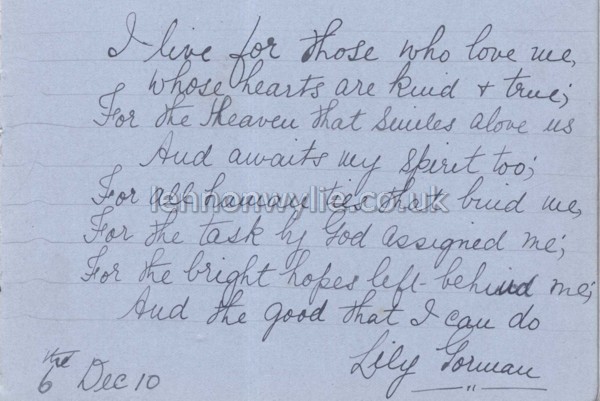 I live for those who love me,
whose hearts are kind & true;
For the Heaven that smiles above us
And awaits my spirit too;
For all human ties that bind me,
For the task by God assigned me;
For the bright hopes left behind me;
And the good that I can do
Lily Gorman
6the Dec 10
lennonwylie.co.uk